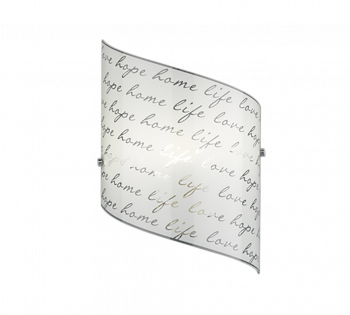 love hope home life
hope home life love
home life love hope
hope home life love hop
hope home life love hope
hope home life love hope
hope home life love hope
hope home life love